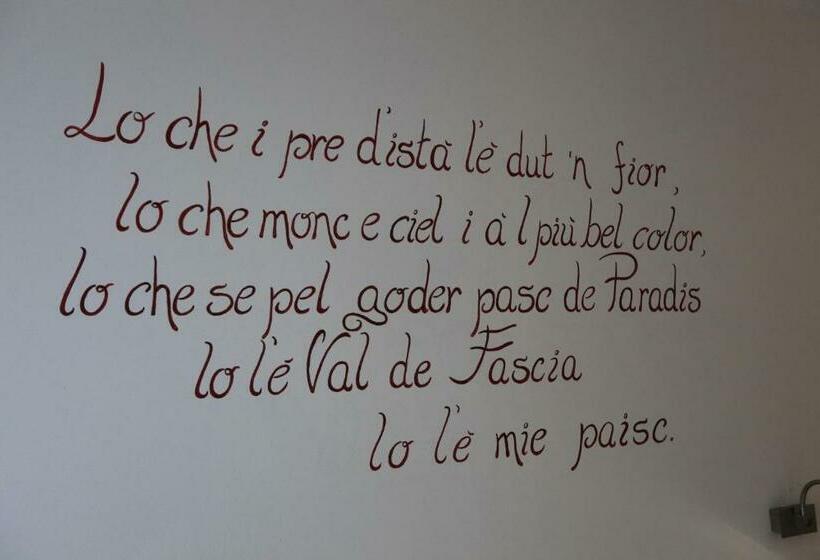 Lo che i pre d'istà l'è dut 'n fior,
lo che monc e ciel i à l più bel color,
lo che se pel goder pasc de Paradis
lo l'é Val de Fascia
lo l'è mie paisc.